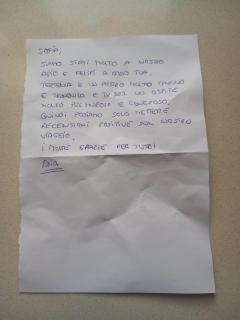 SOFIA,
SIAMO STATI MOLTO A NOSTRO
AGIO E FELICI A CASA TUA.
E UN MOLTO CARINO
E TRANQUILLO E TU SEI UN OSPITE
MOLTO E GENEROSO,
QUINDI POSIAMO SOLO METTERE
RECENSIONI POSITIVE SUL NOSTRO
VIAGGIO.
¡ MOLTE GRAZIE PER TUTTO!
ANA